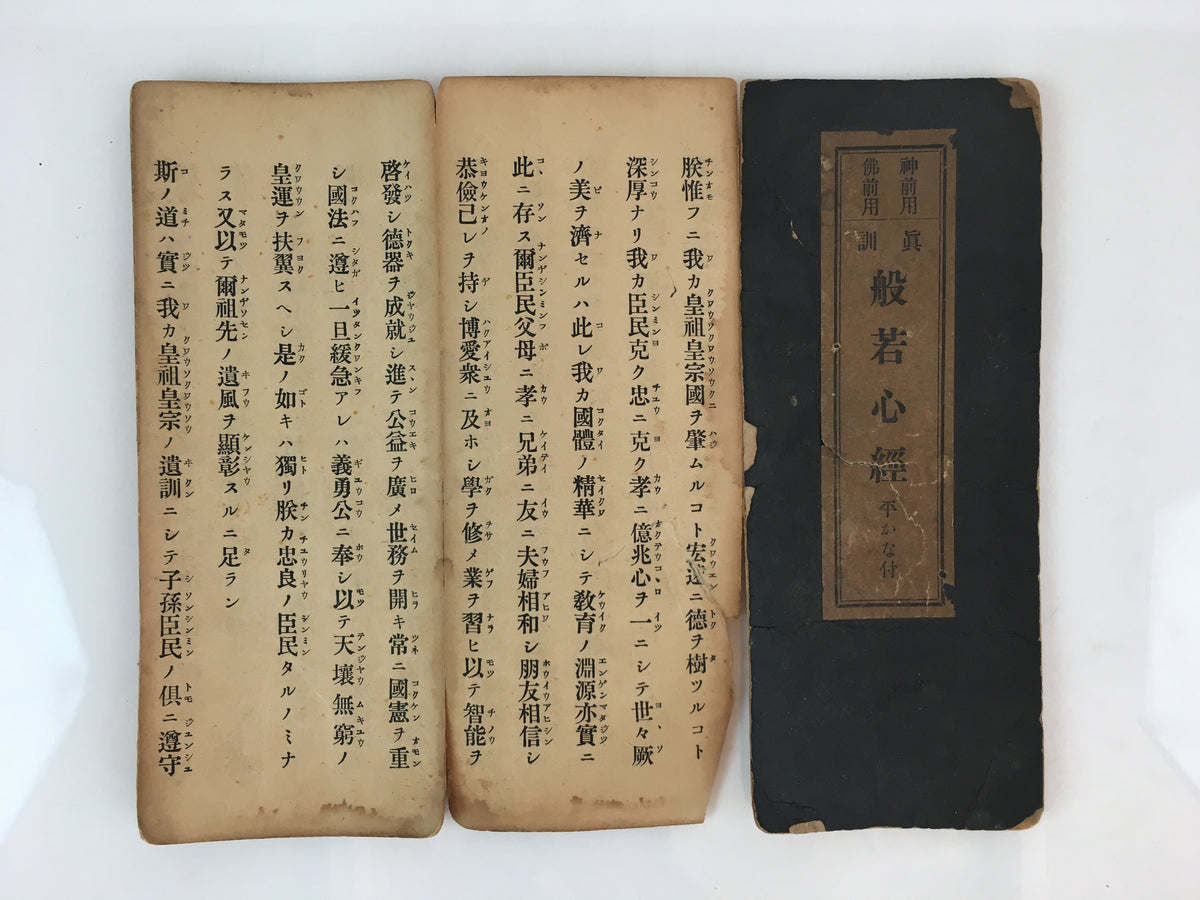 神前用
佛前用
眞
訓
般若心經
平かな付
朕惟フニ我カ皇祖皇宗國ヲ肇ムルコト宏遠ニ德ヲ樹ツルコト
深厚ナリ我カ臣民克ク忠ニ克ク孝ニ億兆心ヲ一ニシテ世々厥
ノ美ヲ濟セルハ此レ我カ國體ノ精華ニシテ敎育ノ淵源亦實ニ
此ニ存ス爾臣民父母ニ孝ニ兄弟ニ友ニ夫婦相和シ朋友相信シ
恭儉己レヲ持シ博愛衆ニ及ホシ學ヲ修メ業ヲ習ヒ以テ智能ヲ
啓發シ德器ヲ成就シ進テ公益ヲ廣メ世務ヲ開キ常ニ國憲ヲ重
シ國法ニ遵ヒ一旦緩急アレハ義勇公ニ奉シ以テ天壤無窮ノ
皇運ヲ扶翼スヘシ是ノ如キハ獨リ朕カ忠良ノ臣民タルノミナ
ラス又以テ爾祖先ノ遺風ヲ顯彰スルニ足ラン
斯ノ道ハ實ニ我カ皇祖皇宗ノ遺訓ニシテ子孫臣民ノ俱ニ遵守